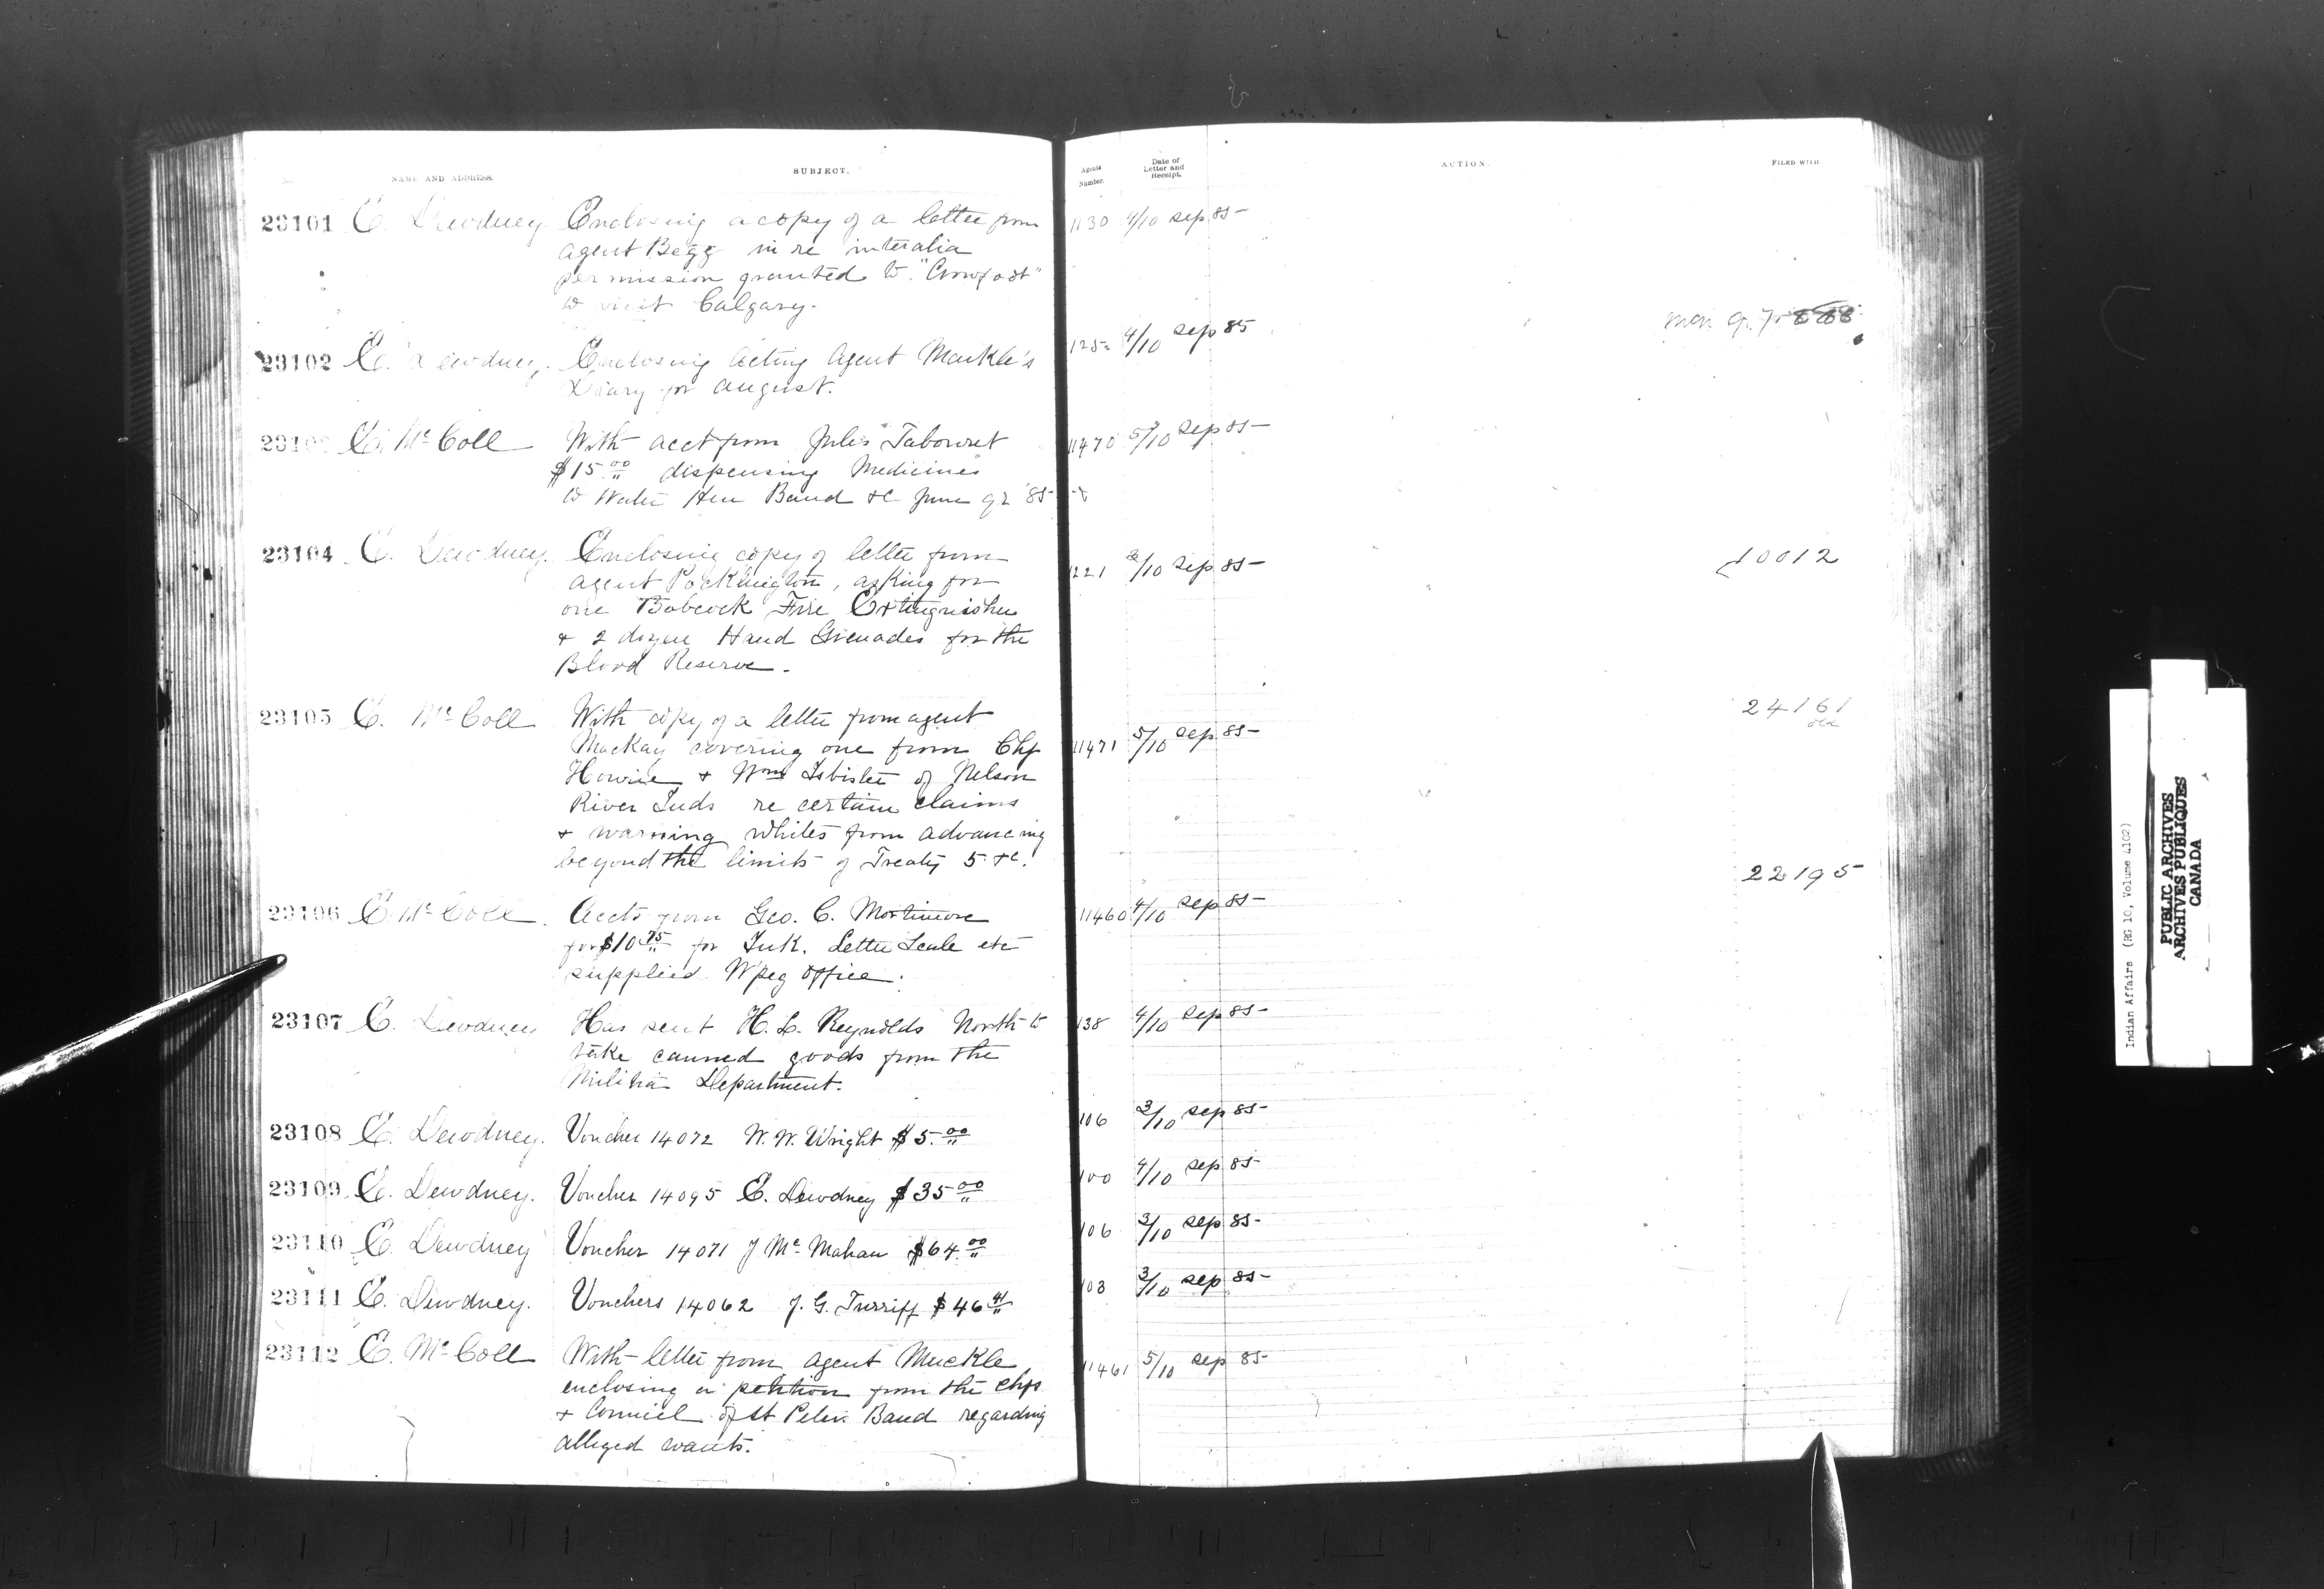 NAME AND ADDRESS.
SUBJECT.
23101 E. Dewdney. Enclosing a copy of a letter from
agent Begg in re interalia
permission granted to "Crowfoot"
to visit Calgary.
23102 E. Dewdney. Enclosing Acting Agent Markle's
Diary for August.
E. McColl With acct from Jules Tabouret
$15.00 dispensing Medicines
to Water Hen Band &c June qr '85
23104 E. Dewdney. Enclosing copy of letter from
agent Pocklington, asking for
one Babcock Fire Extinguisher
& 2 dozen Hand Grenades for the
Blood Reserve.
23105 E. McColl With copy of a letter from agent
Mackay covering one from Chf
Howrie & Wm Isbister of Nelson
River Inds re certain claims
& warning whites from advancing
beyond the limits of Treaty 5 &c.
23106 E. McColl. Accts from Geo. C. Mortimore
for $10.75 for Ink. Letter Scale etc
supplied. Wpeg office.
23107 E. Dewdney Has sent H. L. Reynolds North to
take canned goods from the
Militia Department.
23108 E. Dewdney. Voucher 14072 W. W. Wright $5.00
23109 E. Dewdney. Voucher 14095 E. Dewdney $35.00
23110 E. Dewdney Voucher 14071 J McMahan $64.00
23111 E. Dewdney. Vouchers 14062 J. G. Turriff $46.41
23112 E. McColl With letter from agent Muckle
enclosing a petition from the Chfs
& Council of St Peters Band regarding
alleged wants.
Agents Number.
Date of Letter and Receipt.
ACTION.
FILED WITH
1130 4/10 Sep 85
125 4/10 Sep 85
11470 5/10 Sep 85
221 /10 Sep 85
10012
11471 5/10 Sep 85
24161
22195
11460 4/10 Sep 85
138 4/10 Sep 85
106 3/10 Sep 85
100 4/10 Sep 85
106 3/10 Sep 85
103 3/10 Sep 85
11461 5/10 Sep 85
Indian Affairs (RG 10, Volume 4102)
PUBLIC ARCHIVES
ARCHIVES PUBLIQUES
CANADA